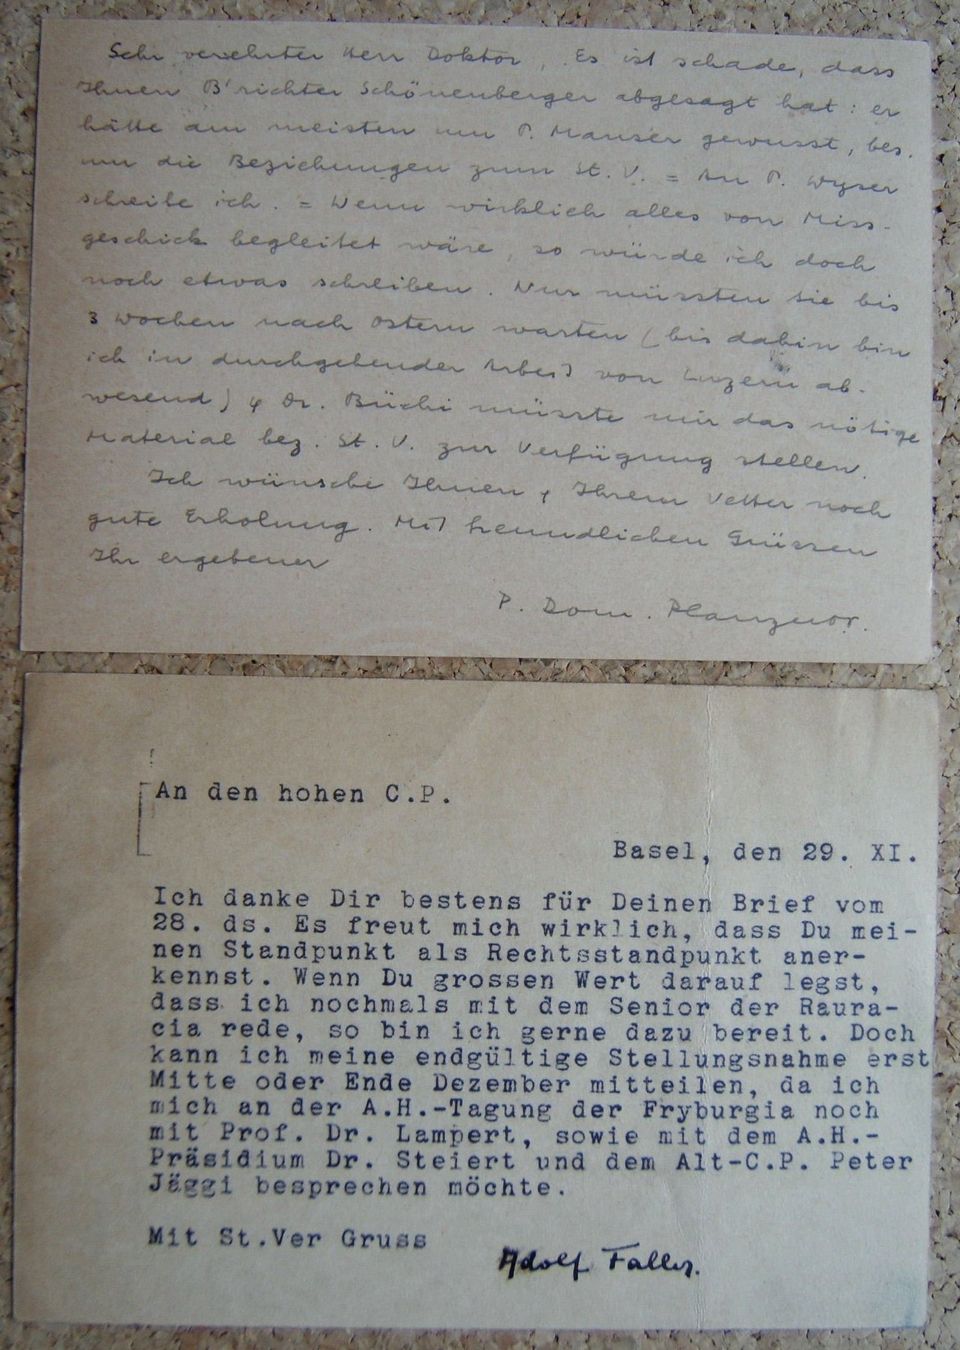 Sehr verehrter Herr Doktor, Es ist schade, dass
Ihnen B'richter Schönenberger abgesagt hat: er
hätte am meisten um P. Mauser gewusst, bes.
um die Beziehungen zum St. V. = An P. Wyser
schreibe ich. = Wenn wirklich alles von Miss-
geschick begleitet wäre, so würde ich doch
noch etwas schreiben. Nur müssten Sie bis
3 Wochen nach Ostern warten (bis dahin bin
ich in durchgehender Arbeit von Luzern ab-
wesend) & Dr. Büchi müsste mir das nötige
Material bez. St. V. zur Verfügung stellen.
Ich wünsche Ihnen & Ihrem Vetter noch
gute Erholung. Mit freundlichen Grüssen
Ihr ergebener
P. Dom. Planzer.
An den hohen C.P.
Basel, den 29. XI.
Ich danke Dir bestens für Deinen Brief vom
28. ds. Es freut mich wirklich, dass Du mei-
nen Standpunkt als Rechtsstandpunkt aner-
kennst. Wenn Du grossen Wert darauf legst,
dass ich nochmals mit dem Senior der Raura-
cia rede, so bin ich gerne dazu bereit. Doch
kann ich meine endgültige Stellungsnahme erst
Mitte oder Ende Dezember mitteilen, da ich
mich an der A.H.-Tagung der Fryburgia noch
mit Prof. Dr. Lampert, sowie mit dem A.H.-
Präsidium Dr. Steiert und dem Alt-C.P. Peter
Jäggi besprechen möchte.
Mit St.Ver Gruss
Adolf Faller.